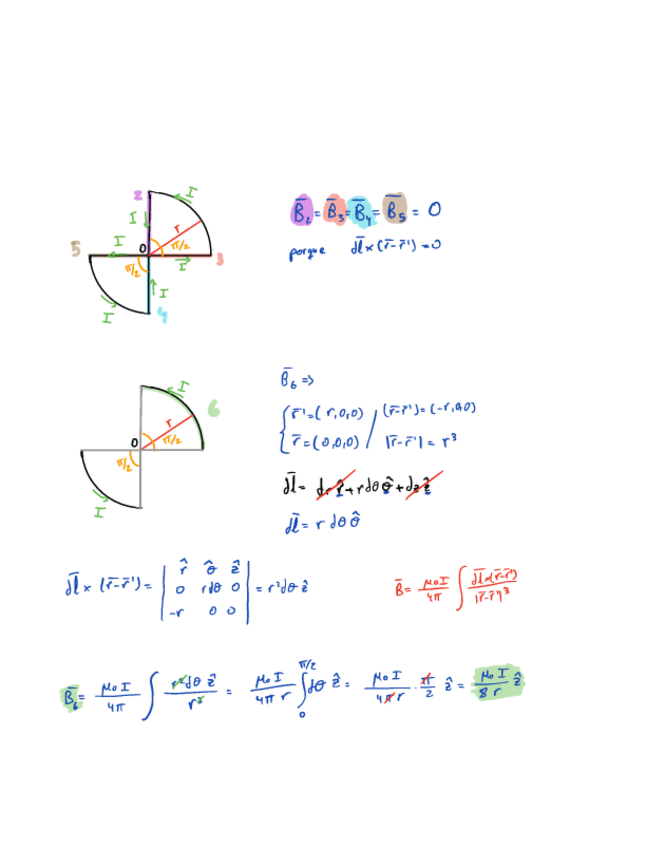 2 I
I r
5 I O π/2
π/2 I 3
I
I 4
B̄₂ = B̄₃ = B̄₄ = B̄₅ = 0
porque d̄l × (r̄ - r̄') = 0
I
6
r
O π/2
π/2
I
B̄₆ ⇒
{ r̄' = (r,0,0) / (r̄-r̄') = (-r,0,0)
r̄ = (0,0,0) / |r̄-r̄'| = r³
d̄l = dr r̂ + r dθ θ̂ + dz ẑ
d̄l = r dθ θ̂
d̄l × (r̄-r̄') = | r̂ θ̂ ẑ |
| 0 rdθ 0 | = r² dθ ẑ
| -r 0 0 |
B̄ = μ₀ I / 4π ∫ d̄l×(r̄-r̄') / |r̄-r̄'|³
B̄₆ = μ₀ I / 4π ∫ r² dθ ẑ / r³ = μ₀ I / 4π r ∫₀^π/2 dθ ẑ = μ₀ I / 4π r · π/2 ẑ = μ₀ I / 8 r ẑ